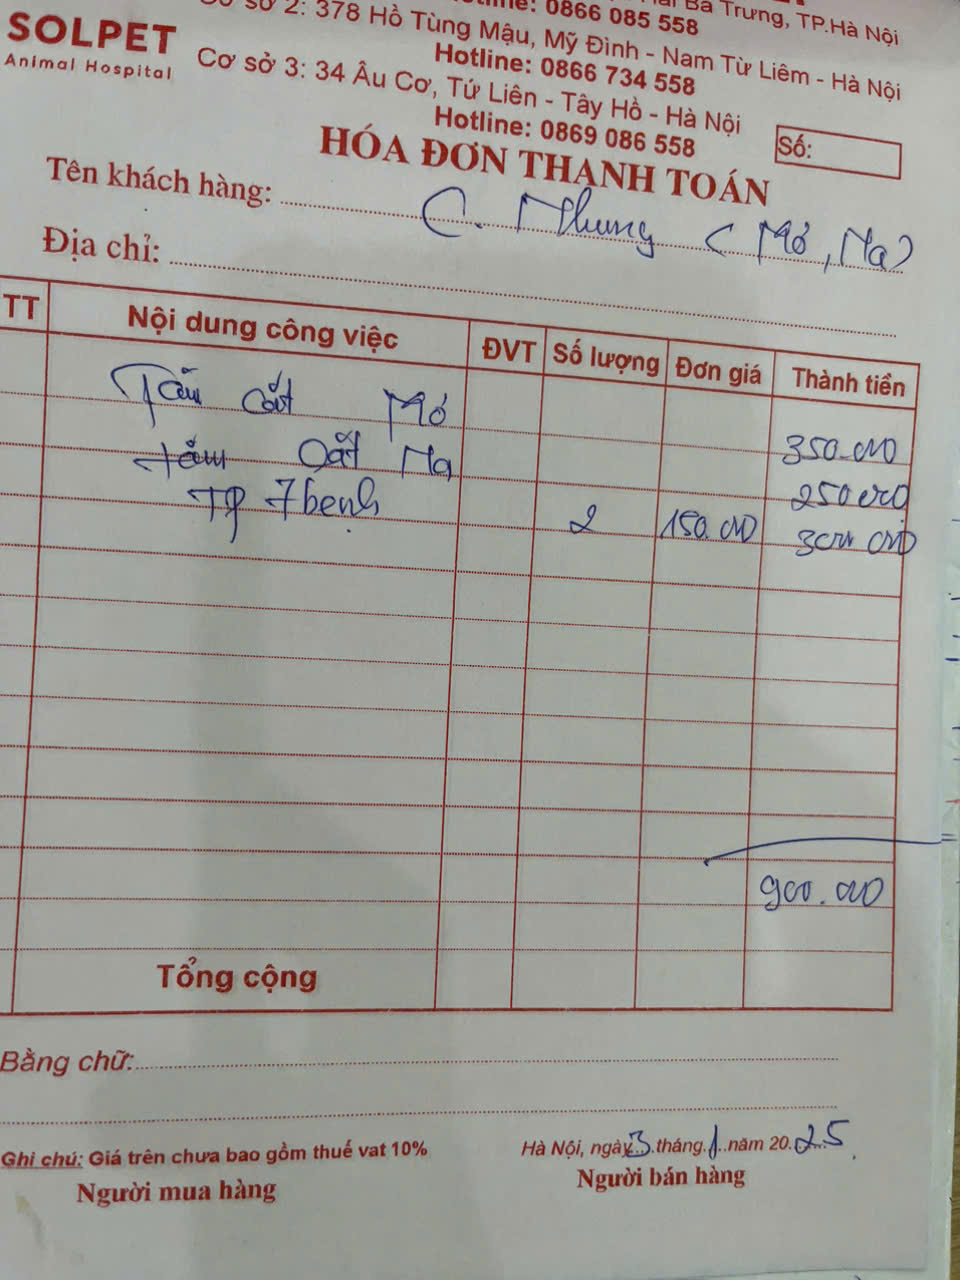 SOLPET
Animal Hospital
Bà Trưng, TP.Hà Nội
0866 085 558
sở 2: 378 Hồ Tùng Mậu, Mỹ Đình - Nam Từ Liêm - Hà Nội
Hotline: 0866 734 558
Cơ sở 3: 34 Âu Cơ, Tứ Liên - Tây Hồ - Hà Nội
Hotline: 0869 086 558
Số:
HÓA ĐƠN THANH TOÁN
Tên khách hàng: C. Nhung (Mơ, Na)
Địa chỉ:
TT Nội dung công việc ĐVT Số lượng Đơn giá Thành tiền
Tắm cắt Mơ 350.000
tắm cắt Na 250.000
TP 7 bệnh 2 150.000 300.000
900.000
Tổng cộng
Bằng chữ:
Ghi chú: Giá trên chưa bao gồm thuế vat 10%
Hà Nội, ngày 3 tháng 1 năm 2025
Người mua hàng Người bán hàng